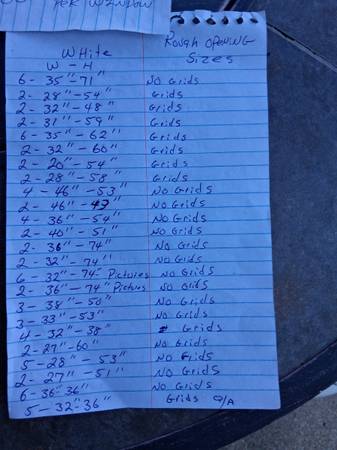 PER WINDOW
White Rough Opening
W - H Sizes
6 - 35" - 71" No Grids
2 - 28" - 54" Grids
2 - 32" - 48" Grids
2 - 31" - 59" Grids
6 - 35" - 62" Grids
2 - 32" - 60" Grids
2 - 20" - 54" Grids
2 - 28" - 58" Grids
4 - 46" - 53" No Grids
2 - 46" - 47" No Grids
4 - 36" - 54" No Grids
2 - 40" - 51" No Grids
2 - 36" - 74" No Grids
2 - 32" - 74" No Grids
6 - 32" - 74" Pictures No Grids
2 - 36" - 74" Pictues No Grids
3 - 38" - 50" No Grids
3 - 33" - 53" No Grids
4 - 32" - 38" Grids
2 - 27" - 60" No Grids
5 - 28" - 53" No Grids
2 - 27" - 51" No Grids
6 - 36 - 36" No Grids
5 - 32 - 36" Grids O/A